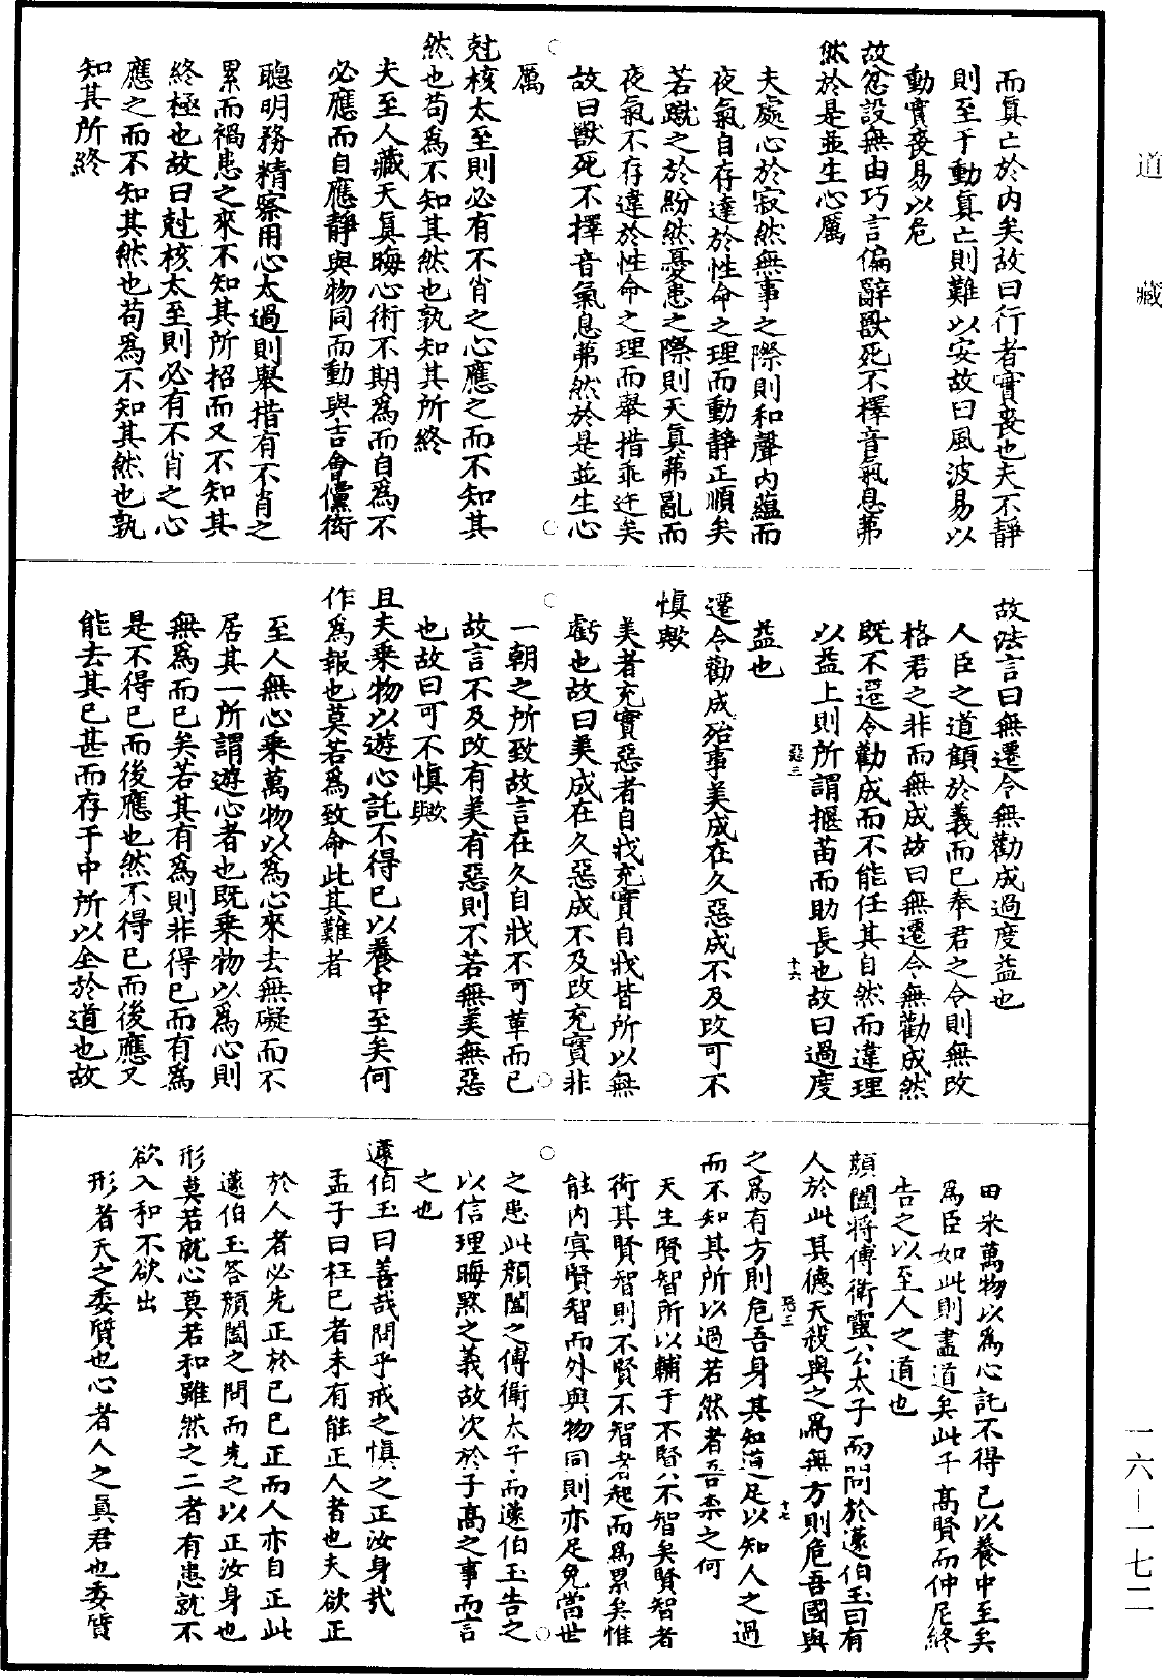 道藏
而真亡於內矣故曰行者實喪也夫不靜
則至于動真亡則難以安故曰風波易以
動實喪易以危
故忿設無由巧言偏辭獸死不擇音氣息茀
然於是並生心厲
夫處心於寂然無事之際則和聲內蘊而
夜氣自存達於性命之理而動靜正順矣
若蹴之於紛然憂患之際則天真茀亂而
夜氣不存違於性命之理而舉措乖迕矣
故曰獸死不擇音氣息茀然於是並生心
厲
尅核太至則必有不肖之心應之而不知其
然也苟爲不知其然也孰知其所終
夫至人藏天真晦心術不期爲而自爲不
必應而自應靜與物同而動與吉會儻衒
聰明務精察用心太過則舉措有不肖之
累而禍患之來不知其所招而又不知其
終極也故曰尅核太至則必有不肖之心
應之而不知其然也苟爲不知其然也孰
知其所終
故法言曰無遷令無勸成過度益也
人臣之道顧於義而已奉君之令則無改
格君之非而無成故曰無遷令無勸成然
既不遷令勸成而不能任其自然而違理
以益上則所謂揠苗而助長也故曰過度
益也
惡三
十六
遷令勸成殆事美成在久惡成不及改可不
慎歟
美者充實惡者自戕充實自戕皆所以無
虧也故曰美成在久惡成不及改充實非
一朝之所致故言在久自戕不可革而已
故言不及改有美有惡則不若無美無惡
也故曰可不慎歟
且夫乗物以遊心託不得已以養中至矣何
作爲報也莫若爲致命此其難者
至人無心乗萬物以爲心來去無礙而不
居其一所謂遊心者也既乗物以爲心則
無爲而已矣若其有爲則非得已而有爲
是不得已而後應也然不得已而後應又
能去其已甚而存于中所以全於道也故
曰乗萬物以爲心託不得已以養中至矣
爲臣如此則盡道矣此子高賢而仲尼終
告之以至人之道也
顏闔將傅衛靈公太子而問於蘧伯玉曰有
人於此其德天殺與之爲無方則危吾國與
之爲有方則危吾身其知適足以知人之過
而不知其所以過若然者吾柰之何
惡三
十七
天生賢智所以輔于不賢不智矣賢智者
衒其賢智則不賢不智者起而爲累矣惟
能內冥賢智而外與物同則亦足免當世
之患此顏闔之傅衛太子而蘧伯玉告之
以信理晦黙之義故次於子高之事而言
之也
蘧伯玉曰善哉問乎戒之慎之正汝身哉
孟子曰枉已者未有能正人者也夫欲正
於人者必先正於已已正而人亦自正此
蘧伯玉答顏闔之問而先之以正汝身也
形莫若就心莫若和雖然之二者有患就不
欲入和不欲出
形者天之委質也心者人之真君也委質
一六—一七二